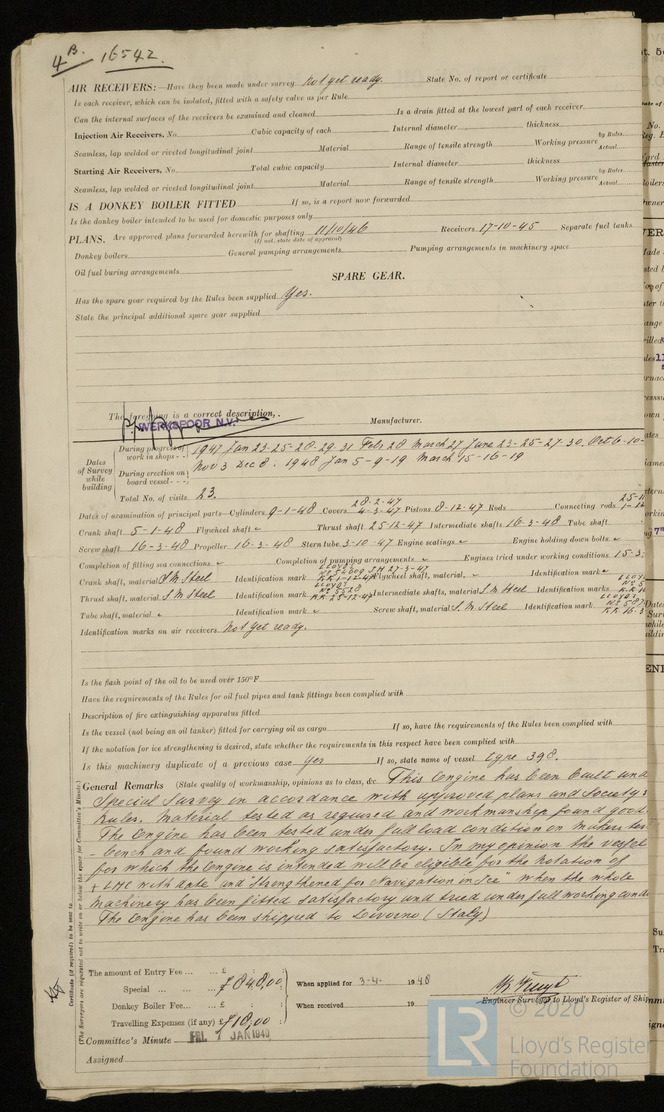 4 B. 16542.
AIR RECEIVERS:—Have they been made under survey Not yet ready. State No. of report or certificate
Is each receiver, which can be isolated, fitted with a safety valve as per Rule
Can the internal surfaces of the receivers be examined and cleaned Is a drain fitted at the lowest part of each receiver
Injection Air Receivers, No. Cubic capacity of each Internal diameter thickness
Seamless, lap welded or riveted longitudinal joint Material Range of tensile strength Working pressure by Rules Actual
Starting Air Receivers, No. Total cubic capacity Internal diameter thickness
Seamless, lap welded or riveted longitudinal joint Material Range of tensile strength Working pressure by Rules Actual
IS A DONKEY BOILER FITTED If so, is a report now forwarded
Is the donkey boiler intended to be used for domestic purposes only
PLANS. Are approved plans forwarded herewith for shafting 11/10/46 Receivers 17-10-45 Separate fuel tanks
(If not, state date of approval)
Donkey boilers General pumping arrangements Pumping arrangements in machinery space
Oil fuel buring arrangements
SPARE GEAR.
Has the spare gear required by the Rules been supplied Yes.
State the principal additional spare gear supplied
The foregoing is a correct description,
WERKSPOOR N.V. Manufacturer.
Dates of Survey while building
During progress of work in shops - - 1947 Jan 23-25-28-29-31 Feb 28 March 27 June 23-25-27-30. Oct 6-10-
During erection on board vessel - - - Nov 3 Dec 8. 1948 Jan 5-9-19 March 15-16-19
Total No. of visits 23.
Dates of examination of principal parts—Cylinders 9-1-48 Covers 28-2-47 4-3-47 Pistons 8-12-47 Rods Connecting rods
Crank shaft 5-1-48 Flywheel shaft Thrust shaft 25 12-47 Intermediate shafts 16-3-48 Tube shaft
Screw shaft 16-3-48 Propeller 16-3-48 Stern tube 3-10-47 Engine seatings Engine holding down bolts
Completion of fitting sea connections Completion of pumping arrangements Engines tried under working conditions 15-3-
Crank shaft, material S.M Steel Identification mark Flywheel shaft, material, Identification mark
Thrust shaft, material S.M Steel Identification mark LLOYDS RR 25-12-47 Intermediate shafts, material S.M Steel Identification marks
Tube shaft, material Identification mark Screw shaft, material S.M Steel Identification mark
Identification marks on air receivers Not yet ready.
Is the flash point of the oil to be used over 150°F
Have the requirements of the Rules for oil fuel pipes and tank fittings been complied with
Description of fire extinguishing apparatus fitted
Is the vessel (not being an oil tanker) fitted for carrying oil as cargo If so, have the requirements of the Rules been complied with
If the notation for ice strengthening is desired, state whether the requirements in this respect have been complied with
Is this machinery duplicate of a previous case yes If so, state name of vessel 398.
General Remarks (State quality of workmanship, opinions as to class, &c. This Engine has been built und
Special Survey in accordance with approved plans and Society's
Rules. Material tested as required and workmanship found good.
The Engine has been tested under full load condition on makers tes
- bench and found working satisfactory. In my opinion the vessel
for which the Engine is intended will be eligible for the Notation of
+ LMC with date and "Strengthened for Navigation in Ice" when the whole
Machinery has been fitted satisfactory and tried under full working cond
The Engine has been shipped to Livorno (Italy)
Certificate (if required) to be sent to
(The Surveyors are requested not to write on or below the space for Committee's Minute.)
The amount of Entry Fee ... ... £
Special ... ... ... ƒ840,00 When applied for 3-4- 1948
Donkey Boiler Fee... ... £ When received 19
Travelling Expenses (if any) £ ƒ10,00
Engineer Surveyor to Lloyd's Register of Ship
Committee's Minute FRI. 7 JAN 1949
Assigned
© 2020
LR Lloyd's Register
Foundation